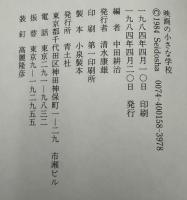 映画の小さな学校
©1984 Seidosha 0074-400158-3978
一九八四年四月一〇日 印刷
一九八四年四月二〇日 発行
編者 中田耕治
発行者 清水康雄
印刷 第一印刷所
製本 小泉製本
発行所 青土社
東京都千代田区神田神保町一—二九 市瀬ビル
電話 東京九—
振替 東京九—一九二九五五
装釘 高麗隆彦